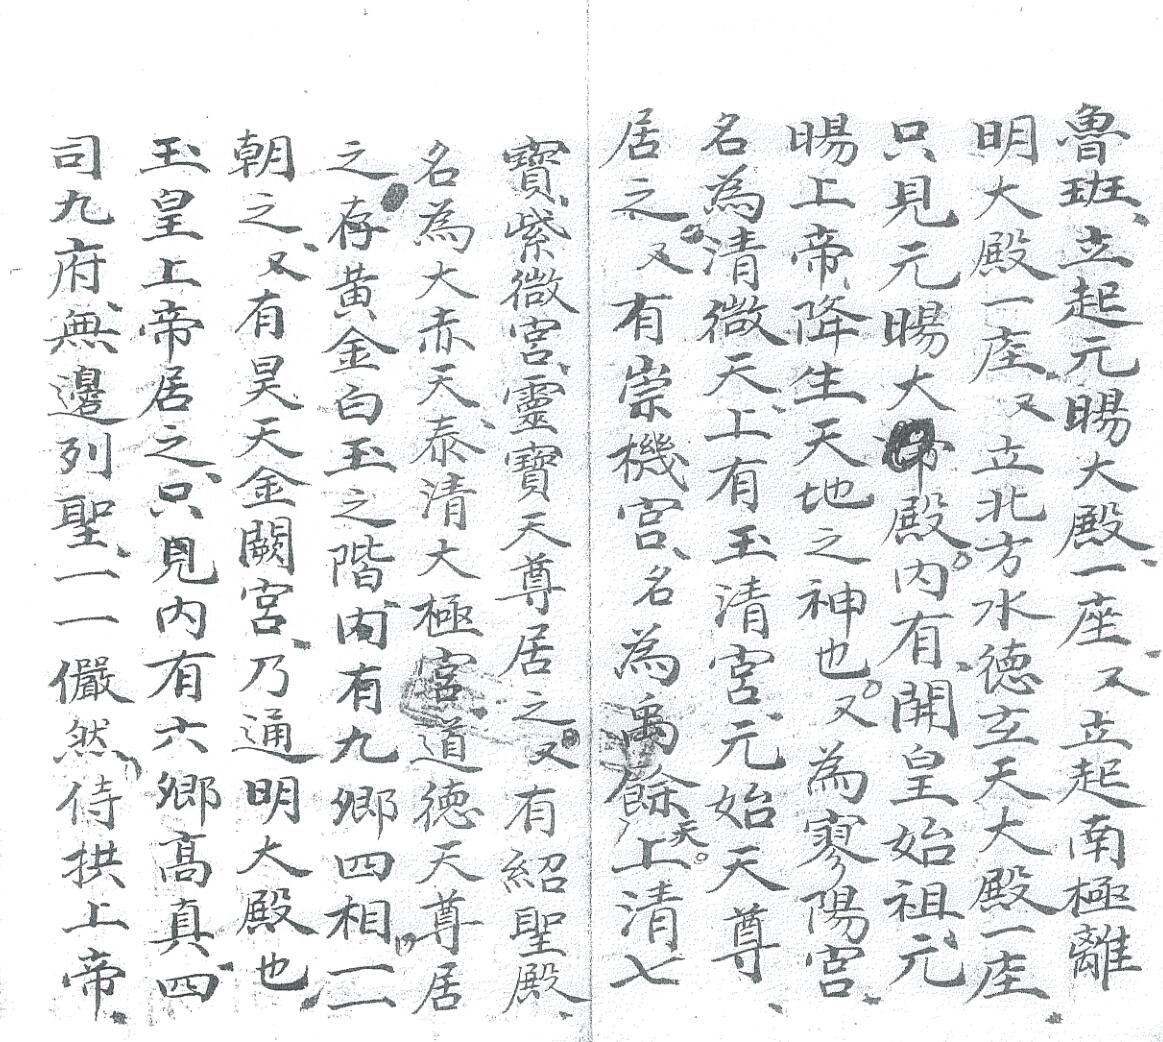 魯班、立起元暘大殿、一座、又立起南極離
明大殿一座、又立北方水德玄天大殿一座
只見元暘大帝殿。内有、開皇始祖、元
暘上帝、降生天地之神也。又為寥陽宮、
名為清微天、上有玉清宮、元始天尊
居之。又有崇機宮、名為禹餘天。上清七
寶、紫微宮、靈寶天尊居之。又有紹聖殿、
名為大赤天、泰清大極宮、道德天尊居
之、存黃金白玉之階、内有九卿四相、一一
朝之、又有昊天金闕宮、乃通明大殿也、
玉皇上帝居之、只見内有六卿高真、四
司九府、無邊列聖、一一儼然、侍拱上帝、